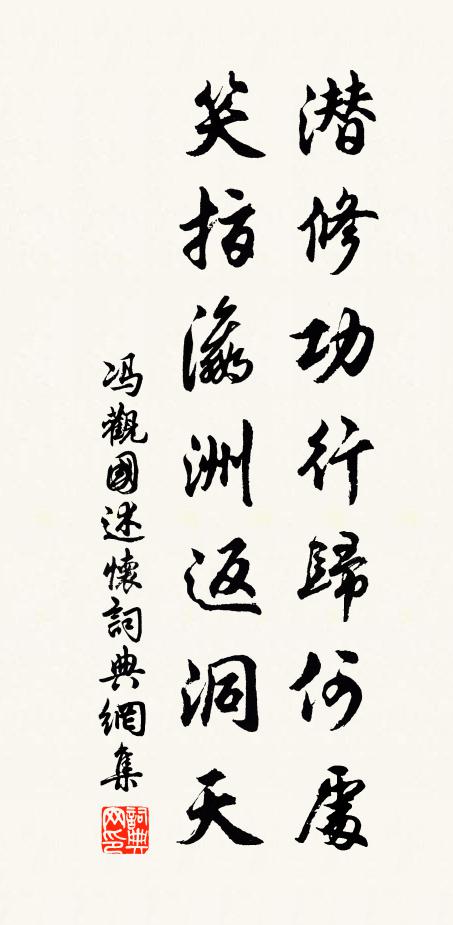 潛修功行歸何處
笑指瀛洲返洞天
冯觀國述懷詞典網集
詞典网印